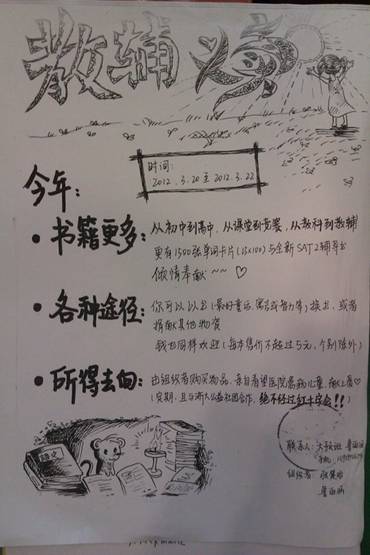 教辅义卖
时间:
2012.3.20至2012.3.22
今年:
•书籍更多: 从初中到高中,从课堂到竞赛,从教科到教辅
更有1500张单词卡片(15×100)与全新SAT2辅导书
倾情奉献~~♡
•各种途径: 你可以以书(最好童话,寓言或智力等)换书,或者
捐献其他物资
我们同样欢迎(每本售价不超过5元,个别除外)
•所得去向: 由组织者购买物品,亲自看望医院患病儿童,献上爱♡
绝不经过红十字会!!)
联系人:
组织者